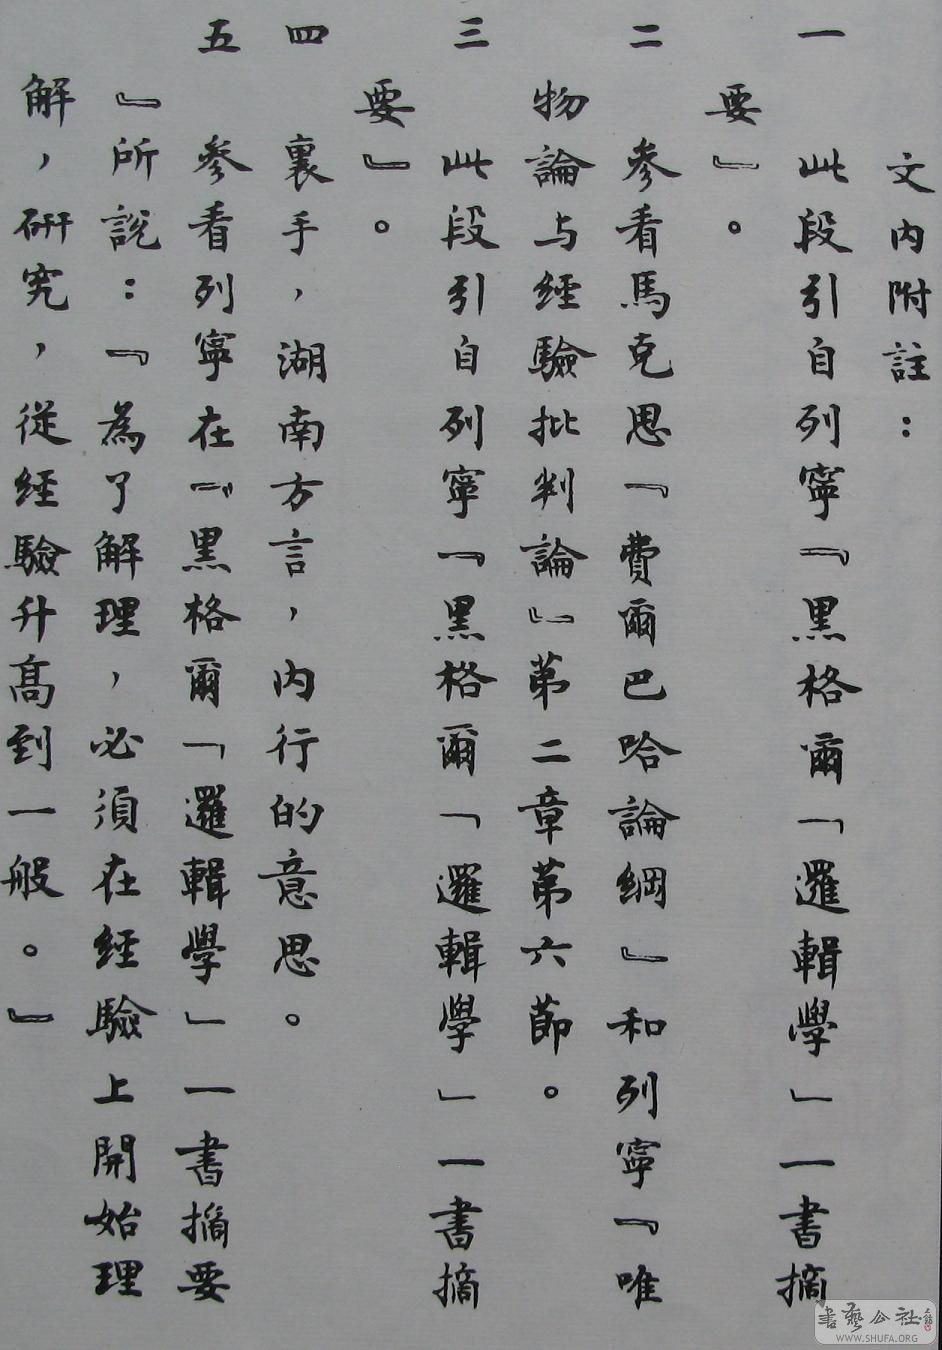 文内附註：
一　此段引自列寧『黑格爾「邏輯學」一書摘
要』。
二　參看馬克思「費爾巴哈論綱」和列寧『唯
物論与經驗批判論』第二章第六節。
三　此段引自列寧『黑格爾「邏輯學」一書摘
要』。
四　裏手，湖南方言，内行的意思。
五　參看列寧在『黑格爾「邏輯學」一書摘要
』所說：『為了解理，必須在經驗上開始理
解，研究，從經驗升高到一般。』
書藝公社
WWW.SHUFA.ORG